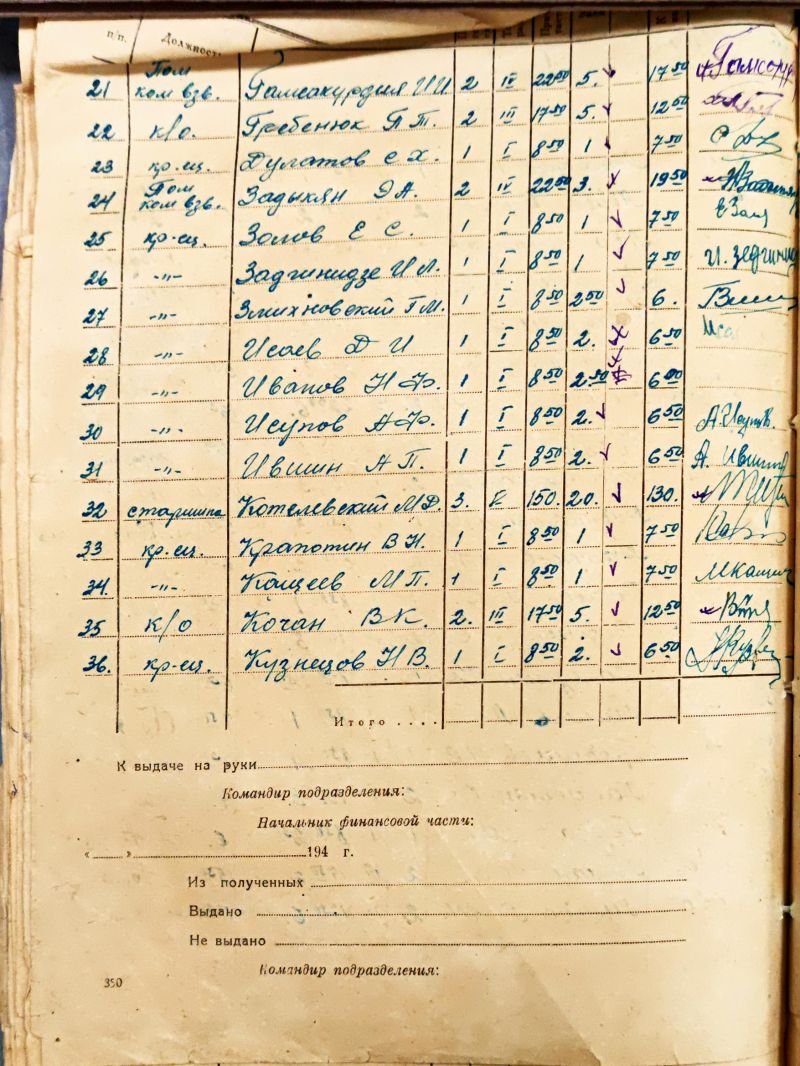 п.п. Должност.
21 Пом ком взв. Гамсахурдия И И 2 IV 22 50 5. 17 50 Гамсаху
22 к/о. Гребенюк П Т. 2 III 17 50 5. 12 50
23 кр-ец. Дулатов С Х. 1 I 8 50 1 7 50
24 Пом ком взв. Задыкян Э А. 2 IV 22 50 3. 19 50
25 кр-ец. Золов Е С. 1 I 8 50 1 7 50
26 -"- Задгинидзе И Л. 1 I 8 50 1 7 50 И. Зедгинид
27 -"- Змихновский Г М. 1 I 8 50 2 50 6.
28 -"- Исаев Д И 1 I 8 50 2. 6 50 Иса
29 -"- Иванов Н Ф. 1 I 8 50 2.50 6 00
30 -"- Исупов А Ф. 1 I 8 50 2. 6 50 А. Исупов.
31 -"- Ившин А П. 1 I 8 50 2. 6 50 А. Ившин
32 старшина Котелевский М Д. 3. V 150. 20. 130.
33 кр-ец. Крапотин В Н. 1 I 8 50 1 7 50
34. -"- Кащеев М П. 1 I 8 50 1 7 50
35 к/о Кочан В К. 2. III 17 50 5. 12 50
36. кр-ец. Кузнецов Н В. 1 I 8 50 2. 6 50
Итого ....
К выдаче на руки
Командир подразделения:
Начальник финансовой части:
« » 194 г.
Из полученных
Выдано
Не выдано
Командир подразделения:
350